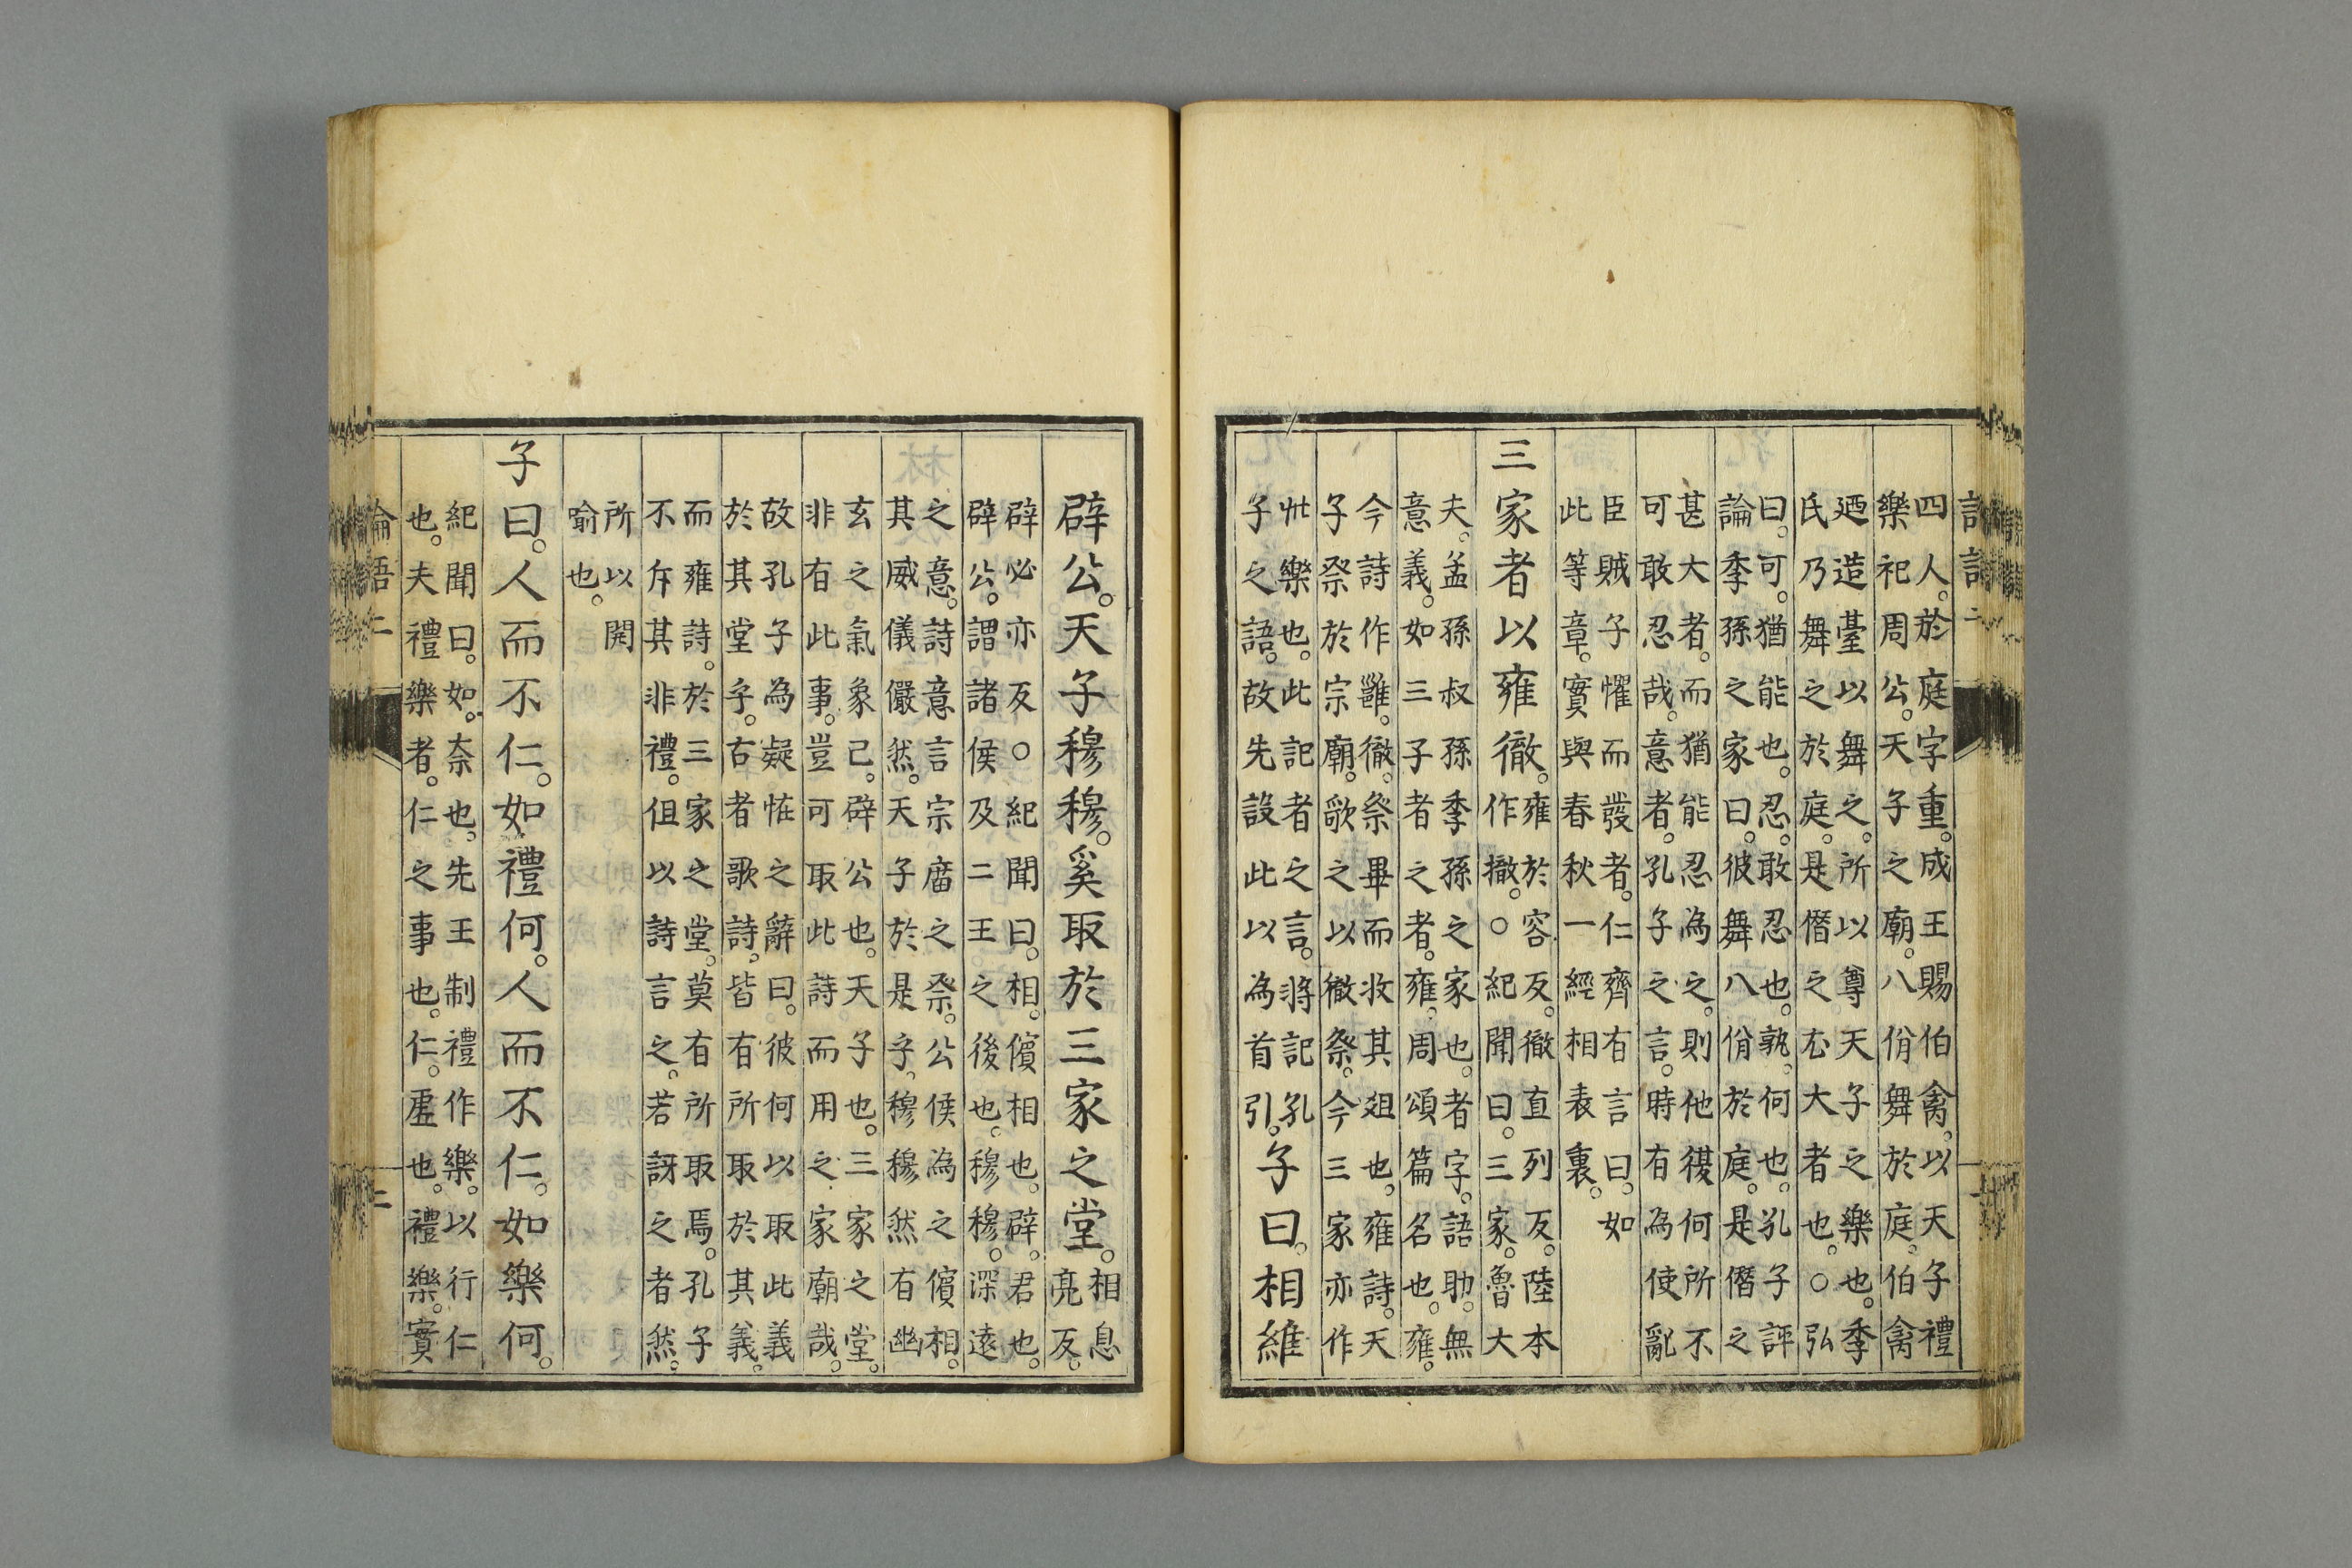 四人。於庭字重。成王賜伯禽。以天子禮
樂祀周公。天子之廟。八佾舞於庭。伯禽
廼造臺以舞之。所以尊天子之樂也。季
氏乃舞之於庭。是僭之尤大者也。○弘
曰。可。猶能也。忍。敢忍也。孰。何也。孔子評
論季孫之家曰。彼舞八佾於庭。是僭之
甚大者。而猶能忍為之。則他後何所不
可敢忍哉。意者。孔子之言。時有為使亂
臣賊子懼而發者。仁齊有言曰。如
此等章。實與春秋一經相表裏。
三家者以雍徹。
雍於容反。徹直列反。陸本
作撤。○紀聞曰。三家。魯大
夫。孟孫叔孫季孫之家也。者字。語助。無
意義。如三子者之者。雍。周頌篇名也。雍。
今詩作雝。徹。祭畢而收其俎也。雍詩。天
子祭於宗廟。歌之以徹祭。今三家亦作
此樂也。此記者之言。將記孔
子之語。故先設此以為首引。
子曰。相維
辟公。天子穆穆。奚取於三家之堂。
相息
亮反。
辟必亦反○紀聞曰。相。儐相也。辟。君也。
辟公。謂諸侯及二王之後也。穆穆。深遠
之意。詩意言宗廟之祭。公侯為之儐相。
其威儀儼然。天子於是乎。穆穆然有幽
玄之氣象已。辟公也。天子也。三家之堂。
非有此事。豈可取此詩而用之家廟哉。
故孔子為疑恠之辭曰。彼何以取此義
於其堂乎。古者歌詩。皆有所取於其義。
而雍詩。於三家之堂。莫有所取焉。孔子
不斥其非禮。但以詩言之。若訝之者然。
所以開
喻也。
子曰。人而不仁。如禮何。人而不仁。如樂何。
紀聞曰。如。奈也。先王制禮作樂。以行仁
也。夫禮樂者。仁之事也。仁。虛也。禮樂。實
論語二
二